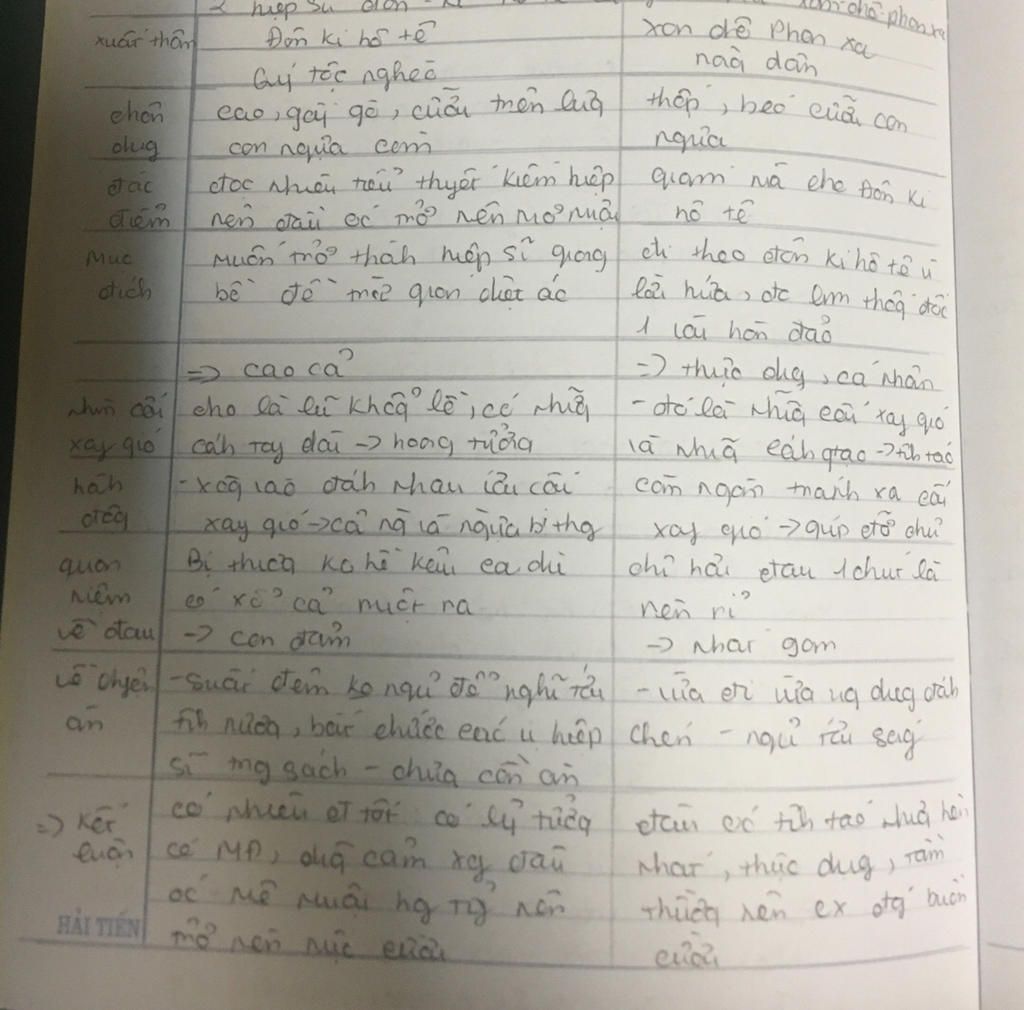 2 hiệp sĩ
xuất thân
Đôn ki hô tê
Quý tộc nghèo
xan chô phan xa
naà dân
chân
dug
cao, gầy gò, cưỡi trên lưg
con ngựa còm
thấp, béo cưỡi con
ngựa
đặc
điểm
đọc nhiều tiểu thuyết kiếm hiệp
nên đầu óc mở nên mơ muội
giám mã cho Đôn ki
hô tê
Mục
đích
Muốn trở thàh hiệp sĩ giang
hồ để trừ gian diệt ác
đi theo đôn ki hô tê vì
lời hứa, đc làm thốg đốc
1 vài hòn đảo
=> cao cả
=> thực dụg, cá nhân
Nhìn cối
xay gió
cho là lũ khổg lồ, có nhữg
cáh tay dài -> hoang tưởng
- đó là nhữg cối xay gió
và nhữg cáh quạt -> tỉh táo
hàh
độg
- xôg vào đáh nhau với cối
xay gió -> cả ng và ngựa bị thg
can ngăn tránh xa cối
xay gió -> giúp đỡ chủ
quan
niệm
về đau
Bị thươg ko hề kêu ca dù
có xổ cả ruột ra
-> can đảm
chỉ hơi đau 1 chút là
rên rỉ
-> nhát gan
về chyện
ăn
- suốt đêm ko ngủ để nghĩ tới
tìh nươg, bắt chước các vị hiệp
sĩ trog sách - chưa cần ăn
- vừa đi vừa ug dug đáh
chén - ngủ tới ság
=> Kết
luận
có nhiều đ tốt có lý tưởg
có MĐ, dũg cảm xg đầu
óc mê muội hg tg nên
trở nên nực cười
đầu óc tỉh táo nhưg hèn
nhát, thực dụg, tầm
thườg nên cx đág buồn
cười
HẢI TIẾN